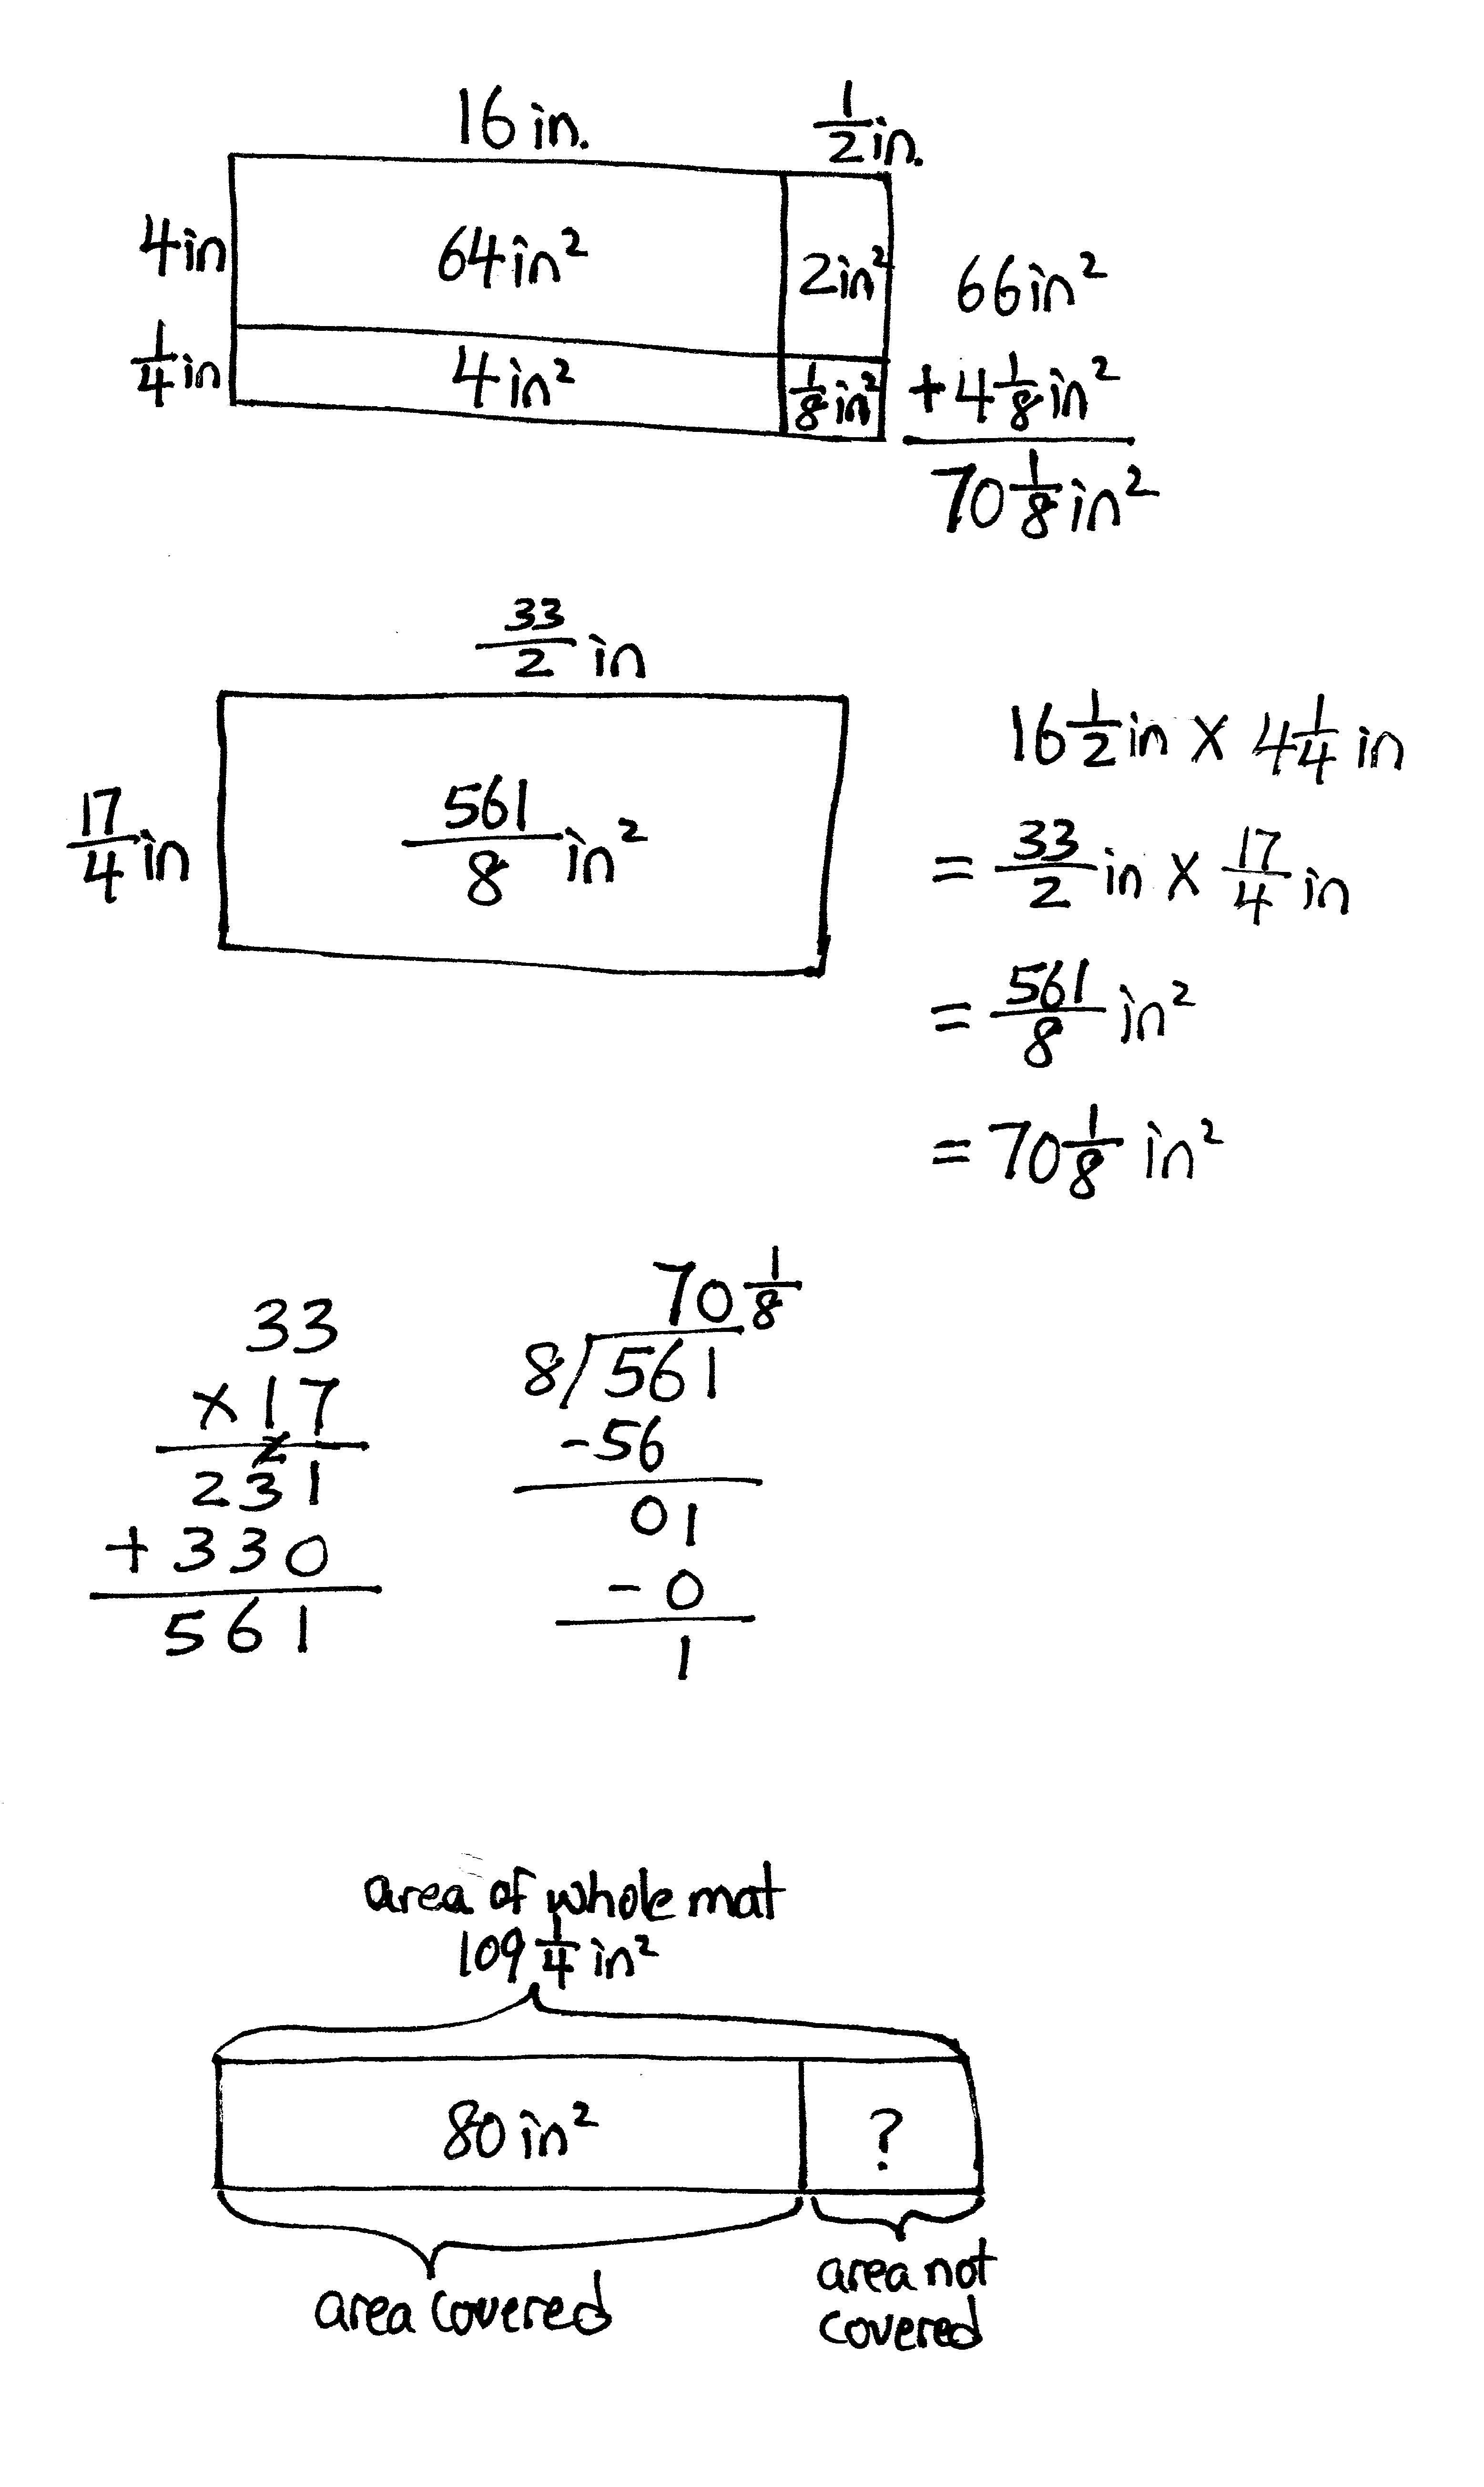 16 in. 1/2 in.
4in 64in² 2in² 66in²
1/4 in 4in² 1/8 in² +4 1/8 in²
70 1/8 in²
33/2 in
17/4 in 561/8 in²
16 1/2 in × 4 1/4 in
= 33/2 in × 17/4 in
= 561/8 in²
= 70 1/8 in²
33
×17
2
231
+330
561
70 1/8
8/561
-56
01
-0
1
area of whole mat
109 1/4 in²
80in² ?
area covered
area not
covered